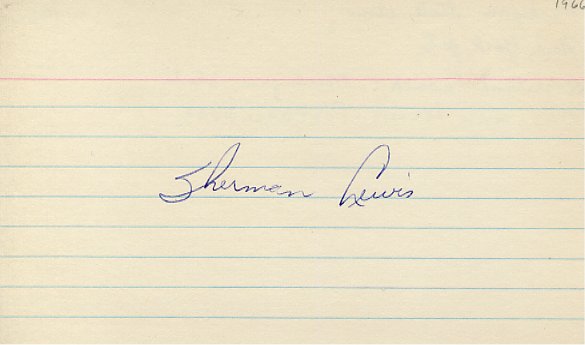 1966
Sherman Lewis